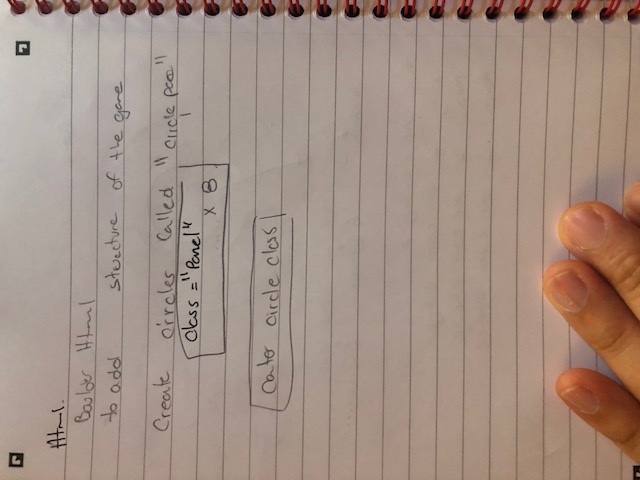 Html.
Boulder Html
to add structure of the game
Create circles Called "circle
class = "Panel"
x 8
circle class